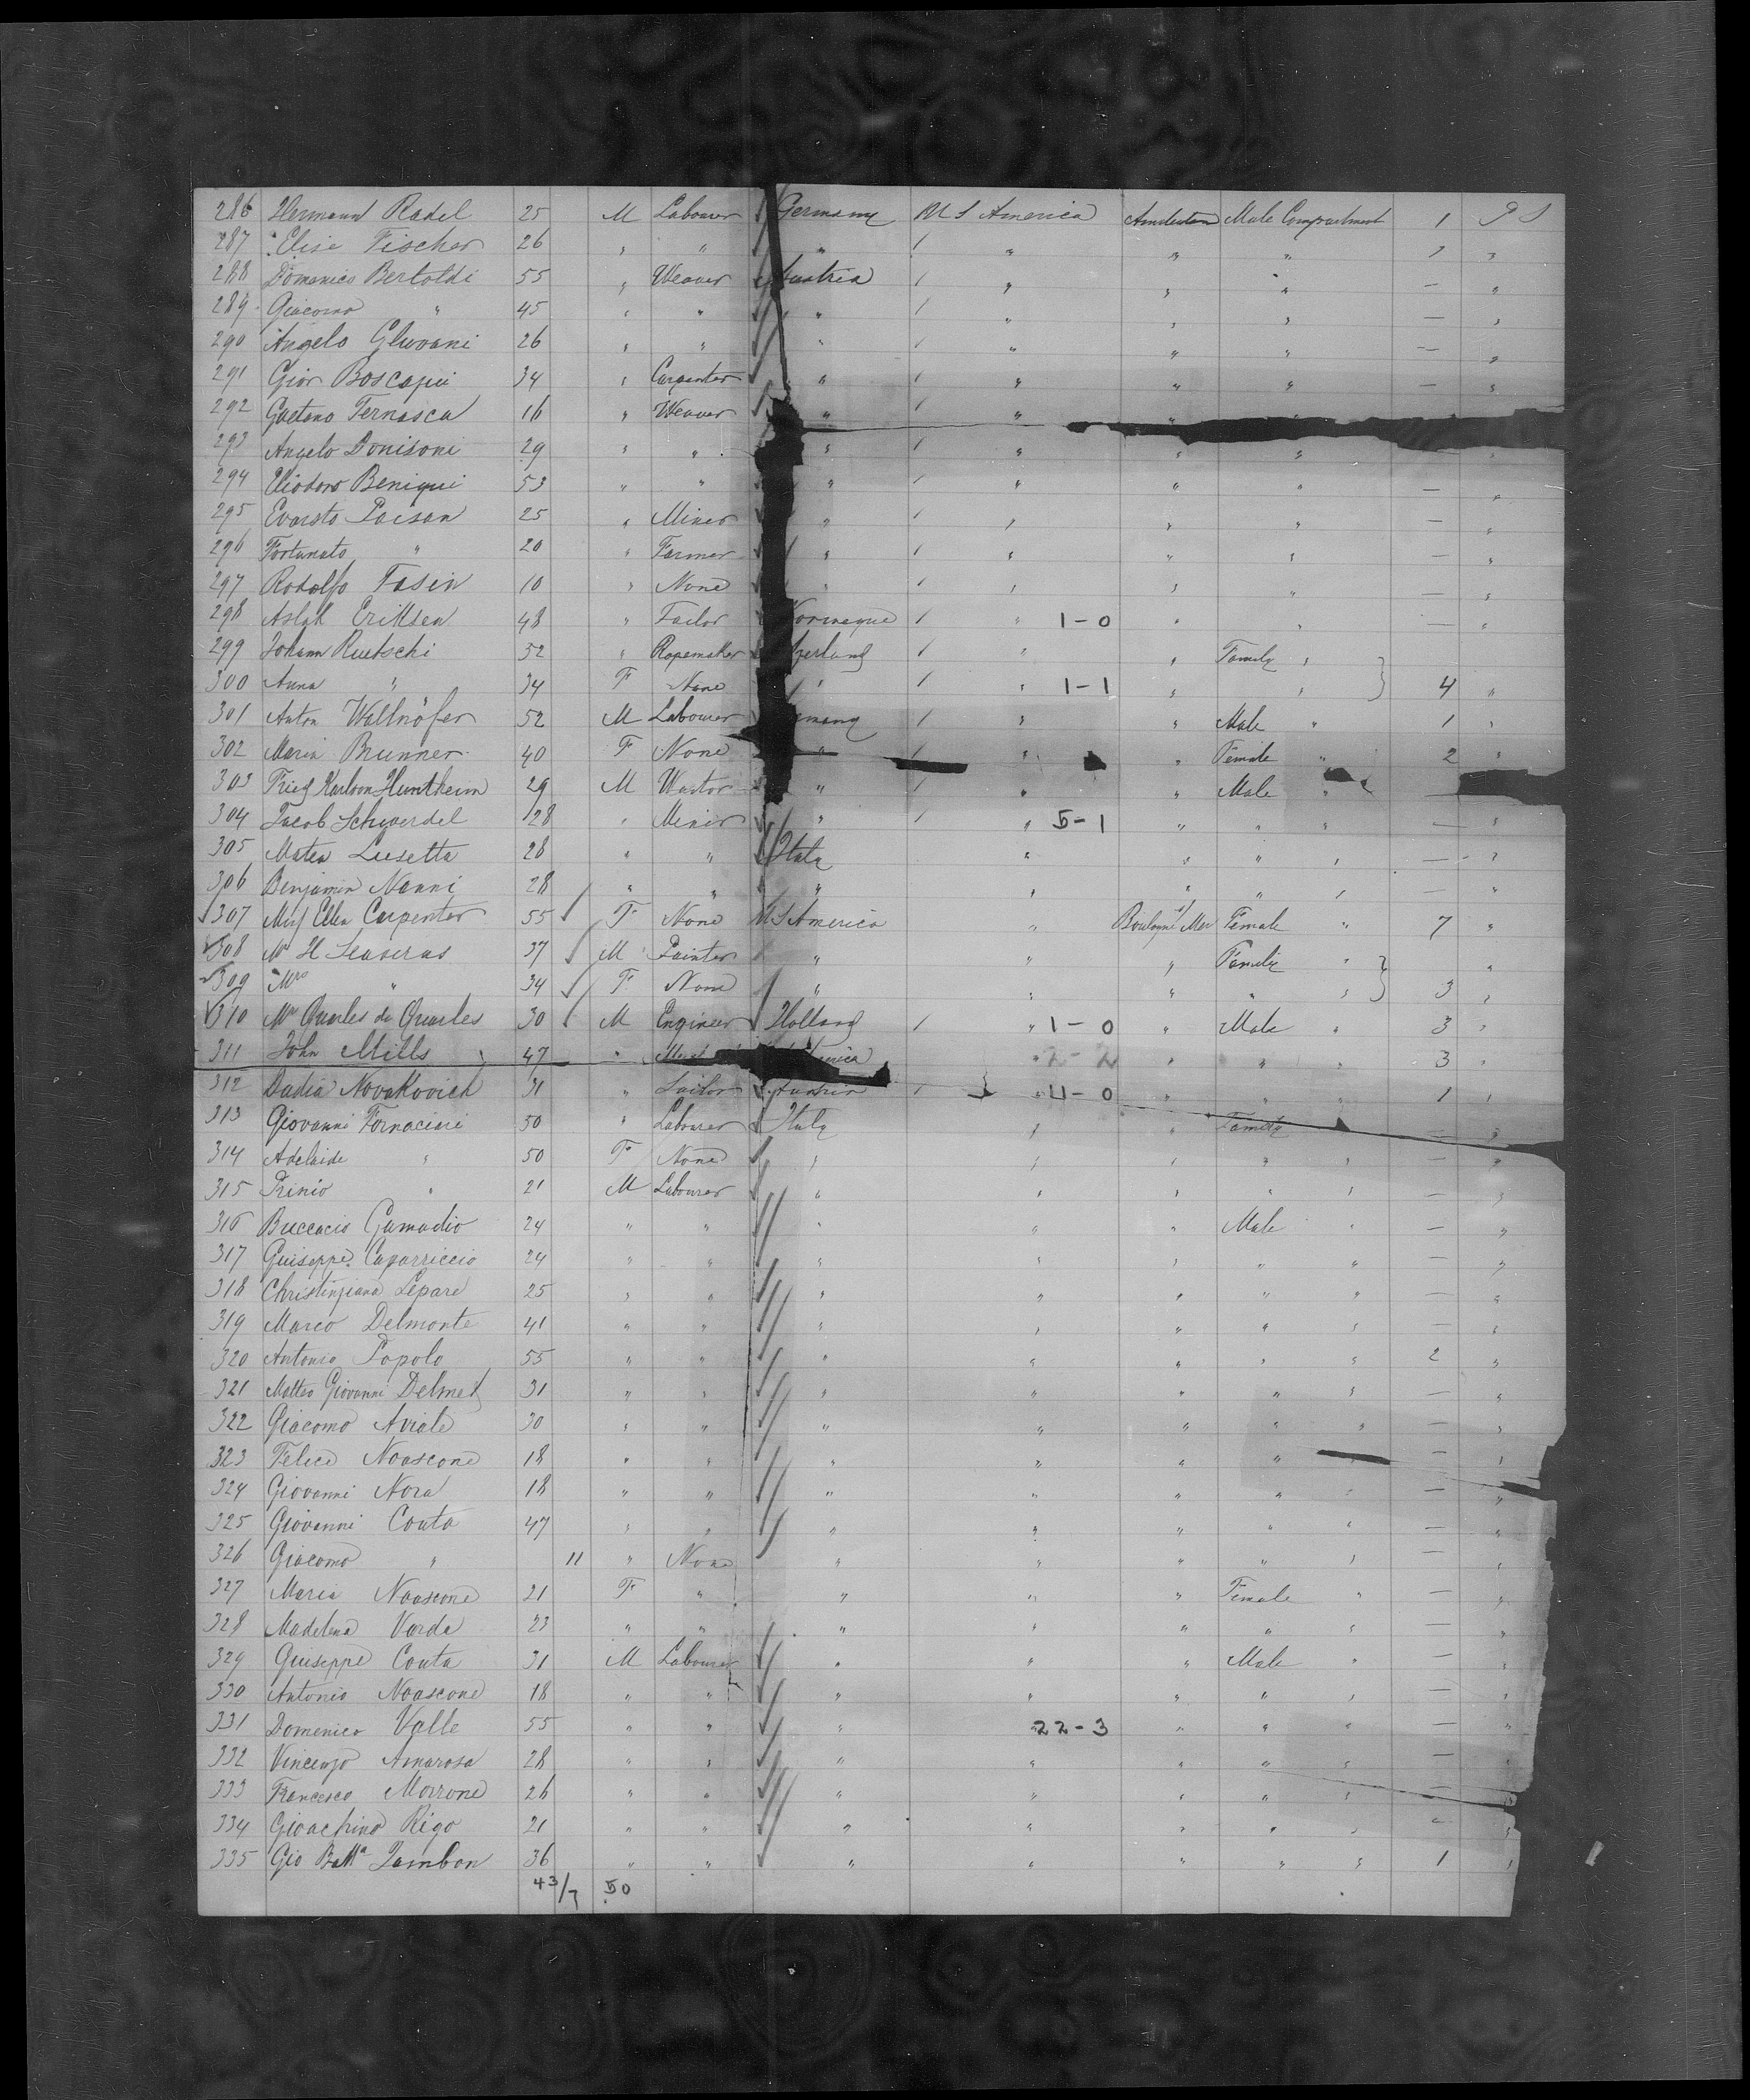 286 Hermann Radel 25 M Labourer Germany U S America Amsterdam Male Compartment 1 P S
287 Elise Fischer 26 " " " " " " 1 "
288 Domenico Bertoldi 55 " Weaver Austria " " " — "
289 Giacomo " 45 " " " " " " — "
290 Angelo 26 " " " " " " — "
291 Gior 34 " Carpenter " " " " — "
292 Gaetano Fernasca 16 " Weaver " " "
293 Angelo Donisoni 29 " " " " " " "
294 Eliodoro Benigui 53 " " " " " " — "
295 Evaristo Paisan 25 " Miner " " " " — "
296 Fortunato " 20 " Farmer " " " " — "
297 Rodolfo Tasin 10 " None " " " " — "
298 Aslak Eriksen 48 " Tailor " 1-0 " " — "
299 Johann Ruetschi 52 " Ropemaker " " Family "
300 Anna " 34 F None " " 1-1 " " 4 "
301 Anton Wallnöfer 52 M Labourer " " Male " 1 "
302 Maria Brunner 40 F None " " " Female " 2 "
303 29 M " " " Male " —
304 Jacob Schwerdel 28 " Miner " " 5-1 " " " — "
305 Matea Lusetta 28 " " Italy " " " " — "
306 Benjamin Nanni 28 " " " " " " " — "
307 Miss Ellen Carpenter 55 F None U S America " Boulogne s/ Mer Female " 7 "
308 Mr H 37 M Painter " " " Family " "
309 Mrs " 34 F None " " " " " 3 "
310 Mr Quarles de Quarles 30 M Engineer Holland " 1-0 " Male " 3 "
311 John Mills 47 " " 2-2 " " " 3 "
312 Dadia Novakovich 31 " Sailor Austria " 4-0 " " " 1 "
313 Giovanni Fornaciari 50 " Labourer Italy " " Family — "
314 Adelaide " 50 F None " " " " " — "
315 Primio " 21 M Labourer " " " " " — "
316 Buccacio Gamadio 24 " " " " " Male " — "
317 Guiseppe Caparriccio 24 " " " " " " " — "
318 Lepare 25 " " " " " " " — "
319 Marco Delmonte 41 " " " " " " " — "
320 Antonio Popolo 55 " " " " " " " 2 "
321 Matteo Giovanni 31 " " " " " " " — "
322 Giacomo Aviale 30 " " " " " " " — "
323 Felice Noascone 18 " " " " " " — "
324 Giovanni Nora 18 " " " " " " " — "
325 Giovanni Conta 47 " " " " " " " — "
326 Giacomo " 11 " None " " " " " — "
327 Maria Noascone 21 F " " " " Female " — "
328 Madelena Varda 23 " " " " " " " — "
329 Giuseppe Conta 31 M Labourer " " " Male " — "
330 Antonio Noascone 18 " " " " " " " — "
331 Domenico Valle 55 " " " 22-3 " " " — "
332 Vincenzo Amarosa 28 " " " " " " " — "
333 Francesco Morrone 26 " " " " " " " — "
334 Gioachino Rigo 21 " " " " " " " — "
335 Gio Batta Zambon 36 " " " " " " " 1 "
43/7 50